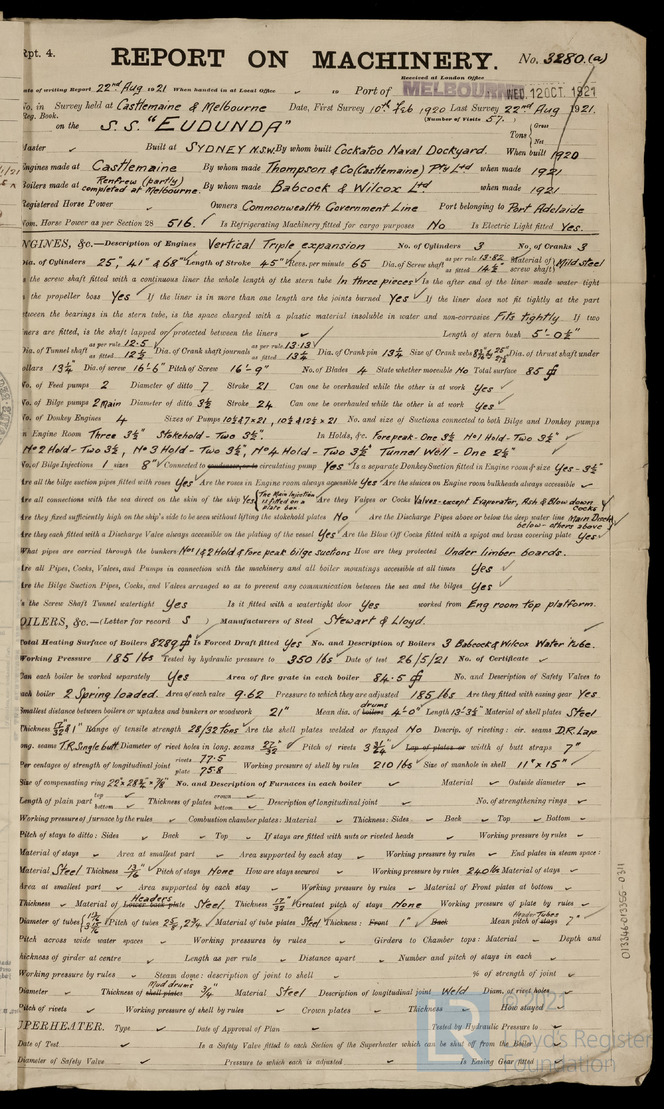 Rpt. 4.
REPORT ON MACHINERY.
No. 3280.(a)
Received at London Office
WED. 12 OCT. 1921
of writing Report 22nd Aug 1921 When handed in at Local Office 19 Port of MELBOURNE
No. in Survey held at Castlemaine & Melbourne Date, First Survey 10th Feb 1920 Last Survey 22nd Aug 1921.
Reg. Book. (Number of Visits 57.)
on the S.S. "EUDUNDA" Tons Gross Net
Master Built at SYDNEY N.S.W. By whom built Cockatoo Naval Dockyard. When built 1920
Engines made at Castlemaine By whom made Thompson & Co (Castlemaine) Pty Ltd when made 1921
Boilers made at Renfrew (partly) completed at Melbourne. By whom made Babcock & Wilcox Ltd when made 1921
Registered Horse Power Owners Commonwealth Government Line Port belonging to Port Adelaide
Nom. Horse Power as per Section 28 516. Is Refrigerating Machinery fitted for cargo purposes No Is Electric Light fitted Yes.
ENGINES, &c.—Description of Engines Vertical Triple expansion No. of Cylinders 3 No. of Cranks 3
Dia. of Cylinders 25", 41" & 68" Length of Stroke 45" Revs. per minute 65 Dia. of Screw shaft as per rule 13.82 as fitted 14½ Material of screw shaft Mild steel
Is the screw shaft fitted with a continuous liner the whole length of the stern tube In three pieces Is the after end of the liner made water tight
in the propeller boss Yes If the liner is in more than one length are the joints burned Yes If the liner does not fit tightly at the part
between the bearings in the stern tube, is the space charged with a plastic material insoluble in water and non-corrosive Fits tightly If two
liners are fitted, is the shaft lapped or protected between the liners Length of stern bush 5'-0½"
Dia. of Tunnel shaft as per rule 12.5 as fitted 12¾ Dia. of Crank shaft journals as per rule 13.13 as fitted 13¼ Dia. of Crank pin 13¼ Size of Crank webs Dia. of thrust shaft under
collars 13¼ Dia. of screw 16'-6" Pitch of Screw 16'-9" No. of Blades 4 State whether moveable No Total surface 85
No. of Feed pumps 2 Diameter of ditto 7 Stroke 21 Can one be overhauled while the other is at work Yes
No. of Bilge pumps 2 Main Diameter of ditto 3½ Stroke 24 Can one be overhauled while the other is at work Yes
No. of Donkey Engines 4 Sizes of Pumps No. and size of Suctions connected to both Bilge and Donkey pumps
In Engine Room Three 3½" Stokehold - Two 3½". In Holds, &c. Forepeak-One 3½ No 1 Hold-Two 3½"
No 2 Hold-Two 3½", No 3 Hold-Two 3½", No 4 Hold-Two 3½" Tunnel Well-One 2½"
No. of Bilge Injections 1 sizes 8" Connected to condenser, or to circulating pump Yes Is a separate Donkey Suction fitted in Engine room & size Yes-3½"
Are all the bilge suction pipes fitted with roses Yes Are the roses in Engine room always accessible Yes Are the sluices on Engine room bulkheads always accessible
Are all connections with the sea direct on the skin of the ship Yes (The Main Injection is fitted on a plate box Are they Valves or Cocks Valves-except Evaporator, Ash & Blow down cocks
Are they fixed sufficiently high on the ship's side to be seen without lifting the stokehold plates No Are the Discharge Pipes above or below the deep water line Main Disch below-others above
Are they each fitted with a Discharge Valve always accessible on the plating of the vessel Yes Are the Blow Off Cocks fitted with a spigot and brass covering plate Yes
What pipes are carried through the bunkers Nos 1 & 2 Hold & Fore peak bilge suctions How are they protected Under limber boards.
Are all Pipes, Cocks, Valves, and Pumps in connection with the machinery and all boiler mountings accessible at all times Yes
Are the Bilge Suction Pipes, Cocks, and Valves arranged so as to prevent any communication between the sea and the bilges Yes
Is the Screw Shaft Tunnel watertight Yes Is it fitted with a watertight door Yes worked from Eng room top platform.
BOILERS, &c.—(Letter for record S ) Manufacturers of Steel Stewart & Lloyd.
Total Heating Surface of Boilers 8289 Is Forced Draft fitted Yes No. and Description of Boilers 3 Babcock & Wilcox Water tube.
Working Pressure 185 lbs Tested by hydraulic pressure to 350 lbs Date of test 26/5/21 No. of Certificate
Can each boiler be worked separately Yes Area of fire grate in each boiler 84.5 No. and Description of Safety Valves to
each boiler 2 Spring loaded. Area of each valve 9.62 Pressure to which they are adjusted 185 lbs Are they fitted with easing gear Yes
Smallest distance between boilers or uptakes and bunkers or woodwork 21" Mean dia. of boilers drums 4'-0" Length 13'-3¾" Material of shell plates Steel
Thickness Range of tensile strength 28/32 tons Are the shell plates welded or flanged No Descrip. of riveting: cir. seams D.R. Lap
long. seams T.R. Single butt Diameter of rivet holes in long. seams 27/32" Pitch of rivets Lap of plates or width of butt straps 7"
Per centages of strength of longitudinal joint rivets 77.5 plate 75.8 Working pressure of shell by rules 210 lbs Size of manhole in shell 11" x 15"
Size of compensating ring No. and Description of Furnaces in each boiler Material Outside diameter
Length of plain part top bottom Thickness of plates crown bottom Description of longitudinal joint No. of strengthening rings
Working pressure of furnace by the rules Combustion chamber plates: Material Thickness: Sides Back Top Bottom
Pitch of stays to ditto: Sides Back Top If stays are fitted with nuts or riveted heads Working pressure by rules
Material of stays Area at smallest part Area supported by each stay Working pressure by rules End plates in steam space:
Material Steel Thickness 13/16" Pitch of stays None How are stays secured Working pressure by rules 240 lbs Material of stays
Area at smallest part Area supported by each stay Working pressure by rules Material of Front plates at bottom
Thickness Material of Lower back plate Headers Steel Thickness 17/32" Greatest pitch of stays None Working pressure of plate by rules
Diameter of tubes Pitch of tubes Material of tube plates Steel Thickness: Front 1" Back Mean pitch of stays Header Tubes 7"
Pitch across wide water spaces Working pressures by rules Girders to Chamber tops: Material Depth and
thickness of girder at centre Length as per rule Distance apart Number and pitch of stays in each
Working pressure by rules Steam dome: description of joint to shell % of strength of joint
Diameter Thickness of shell plates Mud drums ¾" Material Steel Description of longitudinal joint Weld Diam. of rivet holes
Pitch of rivets Working pressure of shell by rules Crown plates Thickness How stayed
SUPERHEATER. Type Date of Approval of Plan Tested by Hydraulic Pressure to
Date of Test Is a Safety Valve fitted to each Section of the Superheater which can be shut off from the Boiler
Diameter of Safety Valve Pressure to which each is adjusted Is Easing Gear fitted
013346-013355-0311
LR
© 2021
Lloyd's Register
Foundation